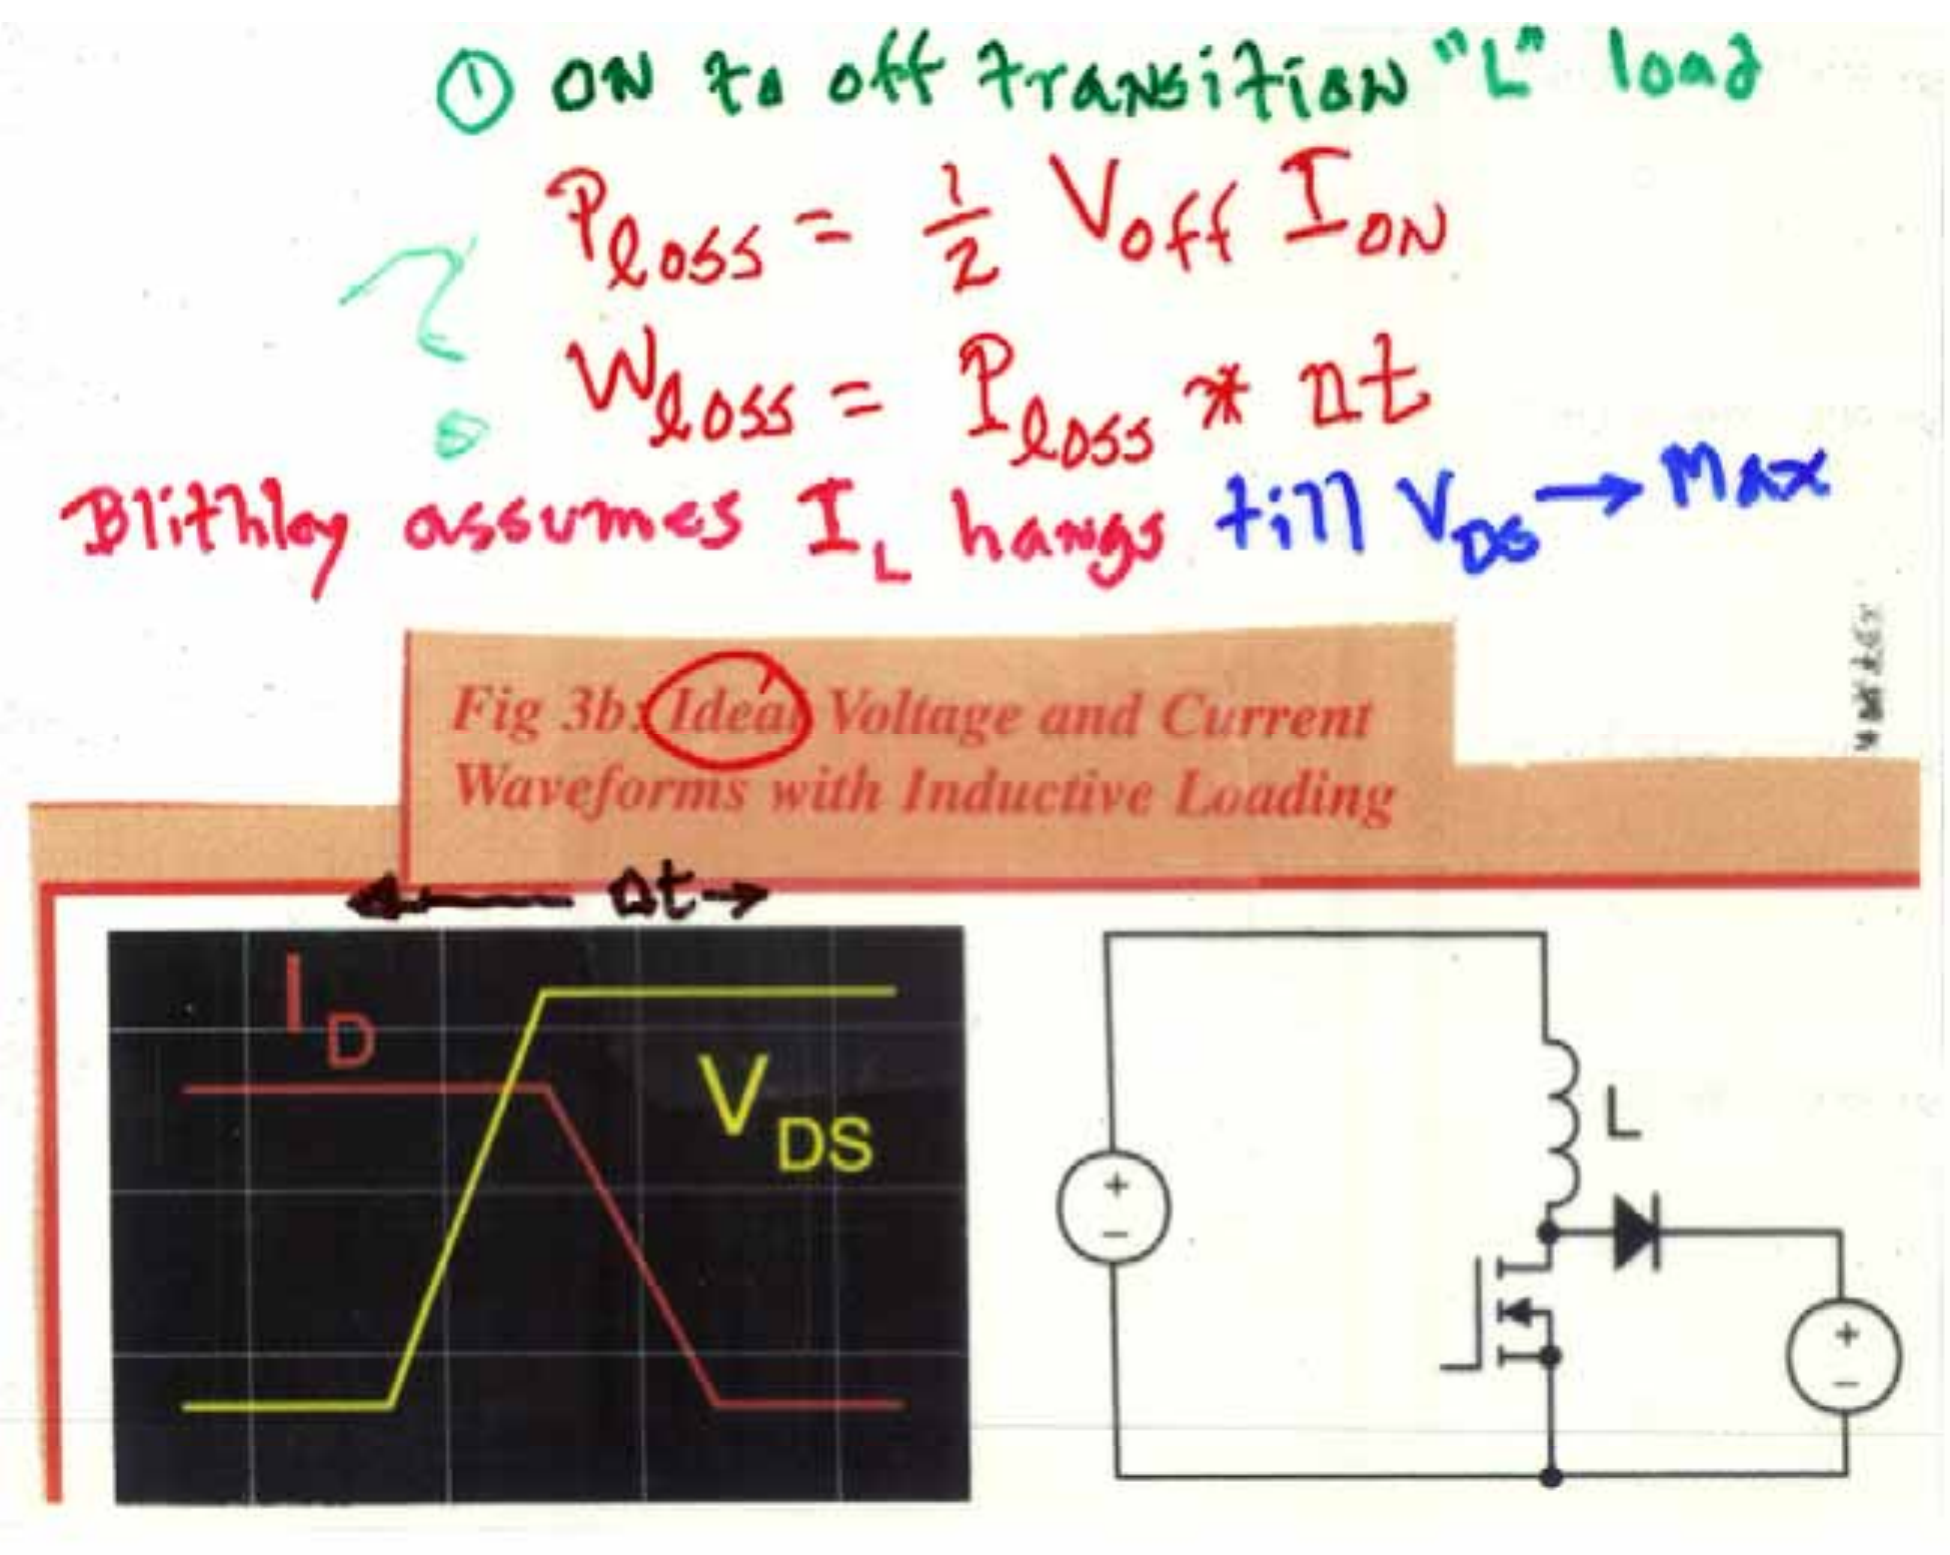 ① ON to off transition "L" load
Ploss = 1/2 Voff ION
?
Wloss = Ploss * Δt
Blithley assumes IL hangs till VDS → Max
Fig 3b: Ideal Voltage and Current
Waveforms with Inductive Loading
Δt
ID
VDS
L
+
−
+
−